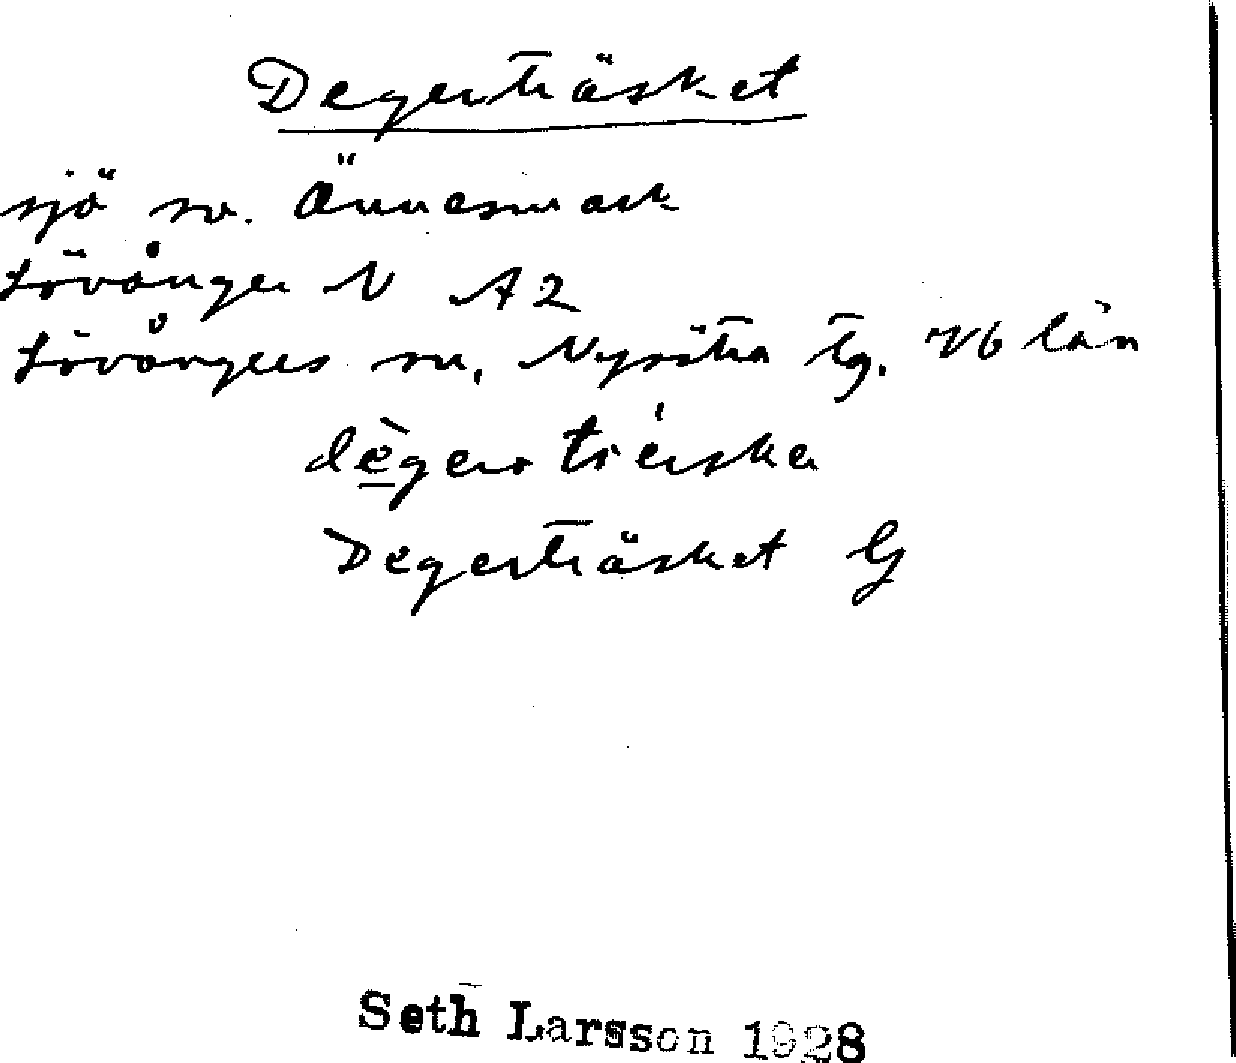 Degerträsket
sjö sv. Ännesmark
Lövånger N A2
Lövångers sn, Nysätra tg. Vb län
Degerträsket G
Seth Larsson 1928